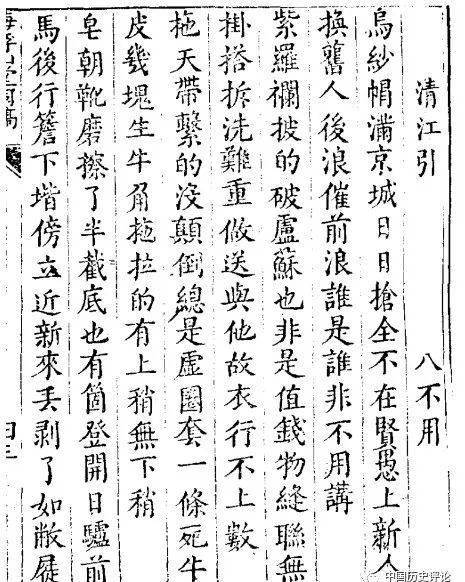 清江引　八不用
烏紗帽滿京城日日搶全不在賢愚上新人
換舊人後浪催前浪誰是誰非不用講
紫羅襴披的破盧蘇也非是值錢物縫聯無
掛搭拆洗難重做送與他故衣行不上數
拖天帶繫的沒顛倒總是虛圈套一條死牛
皮幾塊生牛角拖拉的有上稍無下稍
皂朝靴磨擦了半截底也有箇登開日驢前
馬後行簷下堦傍立近新來丟剥了如敝屣
中国历史评论